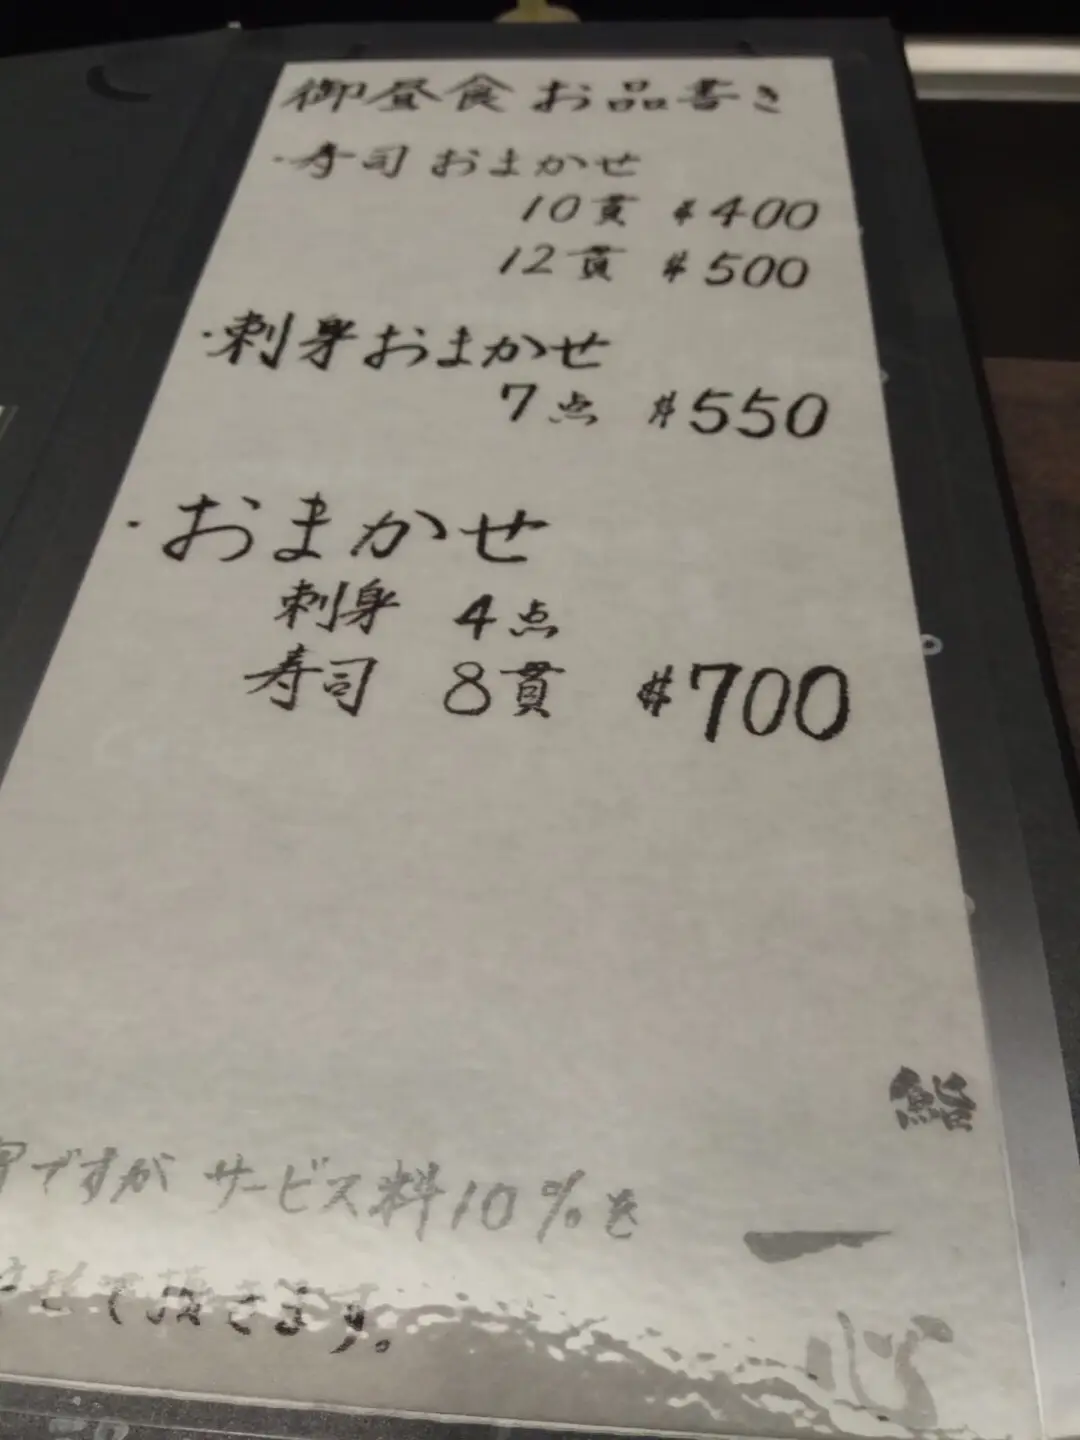 御昼食 お品書き
・寿司 おまかせ
10貫 $400
12貫 $500
・刺身おまかせ
7点 $550
・おまかせ
刺身 4点
寿司 8貫 $700
鮨
一
心
ですが サービス料10%を
させて頂きます。